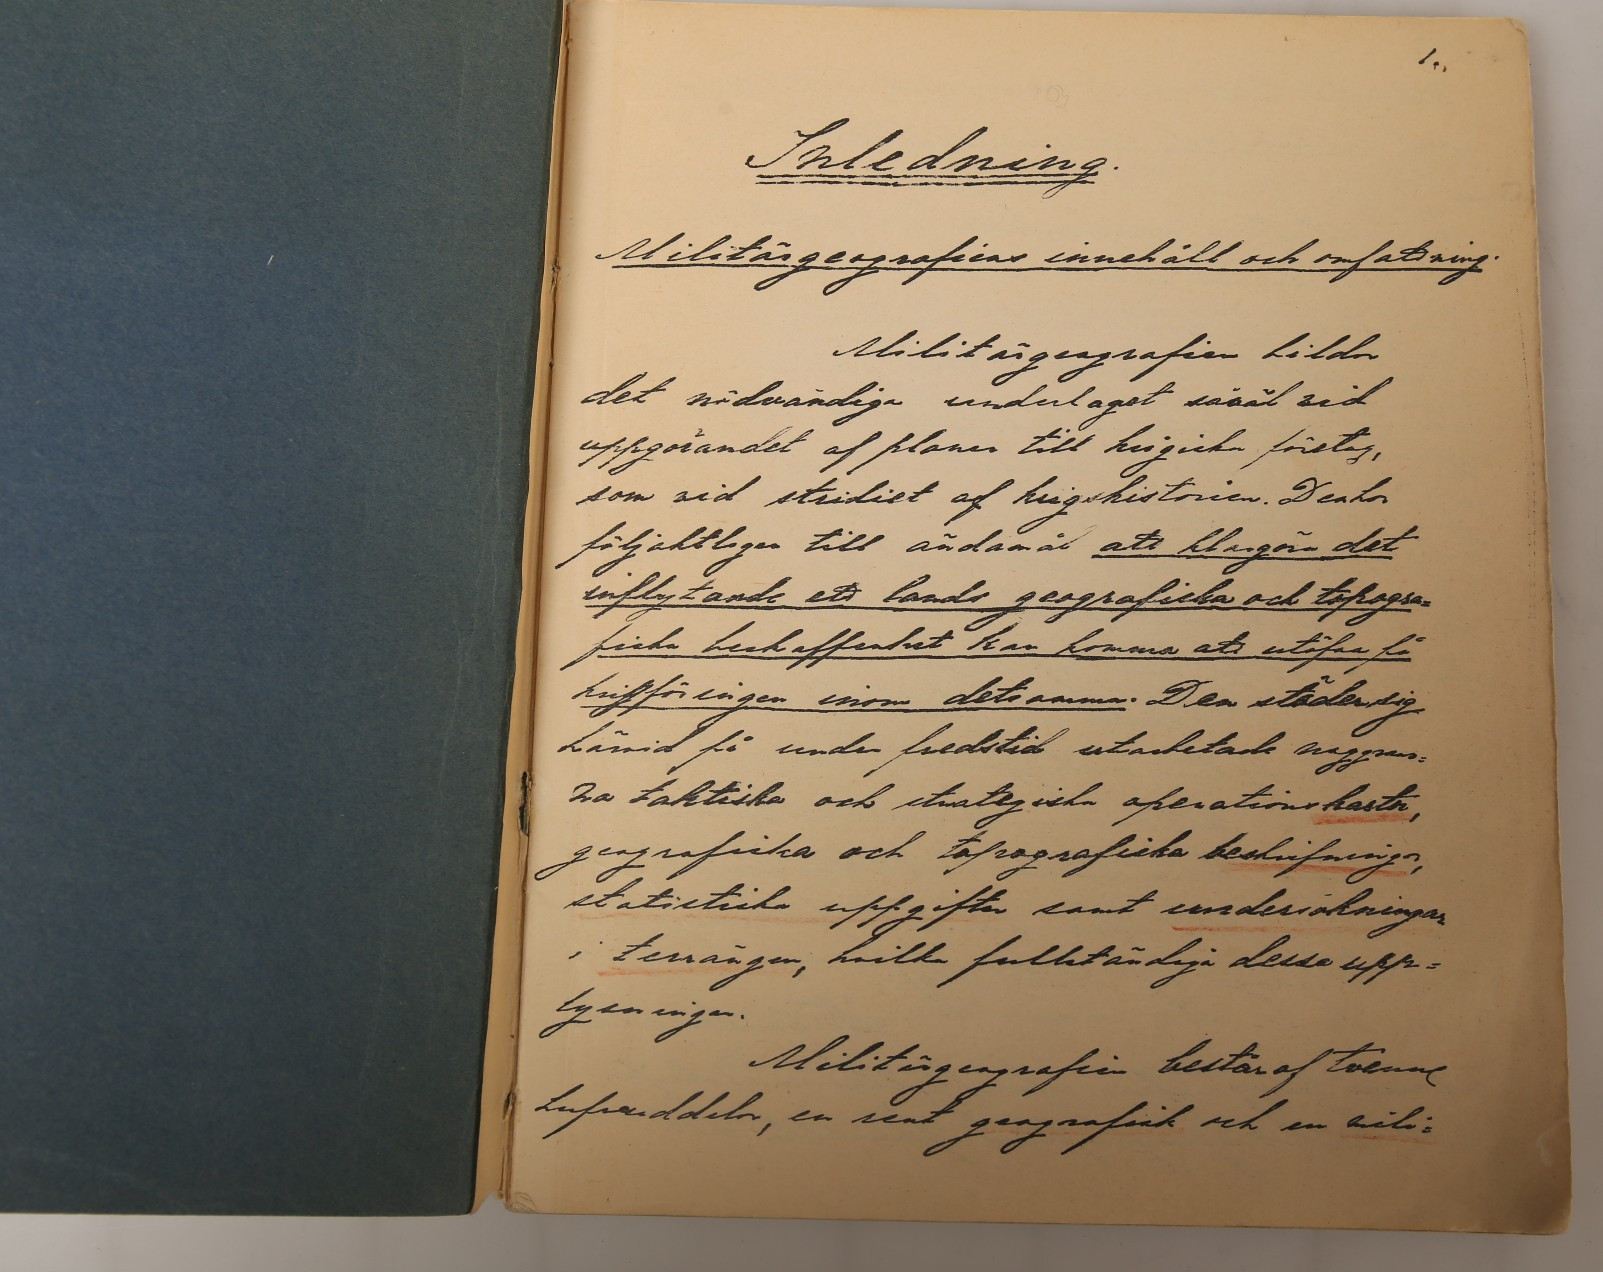 1.
Inledning.
Militärgeografiens innehåll och omfattning.
Militärgeografien bildar
det nödvändiga underlaget såväl vid
uppgörandet af planer till krigiska företag,
som vid studiet af krigshistorien. Den har
följaktligen till ändamål att klargöra det
inflytande ett lands geografiska och topogra=
fiska beskaffenhet kan komma att utöfva på
krigföringen inom detsamma. Den stöder sig
härvid på under fredstid utarbetade noggran=
na taktiska och strategiska operationskartor,
geografiska och topografiska beskrifningar,
statistiska uppgifter samt undersökningar
i terrängen, hvilka fullständiga dessa upp=
lysningar.
Militärgeografien består af tvenne
hufvuddelar, en rent geografisk och en mili=